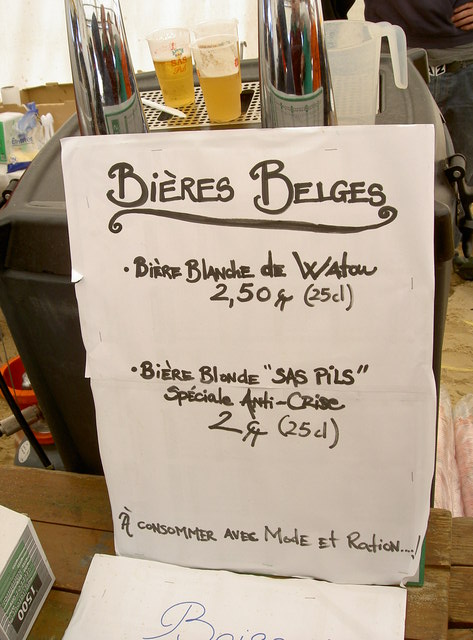 SAS
Pils
BIÈRES BELGES
• BIÈRE BLANCHE de WATOU
2,50 € (25cl)
• BIÈRE BLONDE "SAS PILS"
SPÉCIALE ANTI-CRISE
2 € (25cl)
À CONSOMMER AVEC MODE ET RATION...!
1500